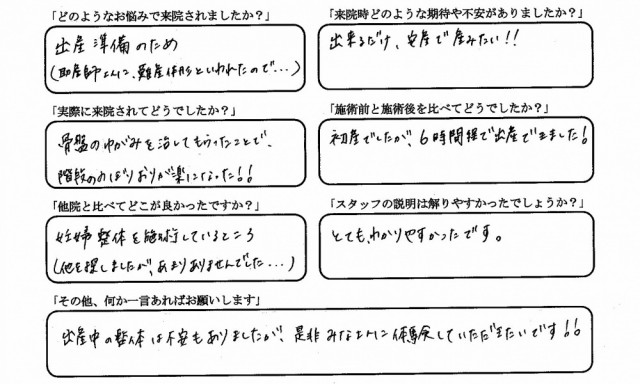 「どのようなお悩みで来院されましたか？」
出産準備のため
(助産師さんに、難産体形といわれたので…)
「来院時どのような期待や不安がありましたか？」
出来るだけ、安産で産みたい!!
「実際に来院されてどうでしたか？」
骨盤のゆがみを治してもらったことで、
階段ののぼりおりが楽になった!!
「施術前と施術後を比べてどうでしたか？」
初産でしたが、6時間程で出産できました!
「他院と比べてどこが良かったですか？」
妊婦整体を施術しているところ
(他を探しましたが、あまりありませんでした…)
「スタッフの説明は解りやすかったでしょうか？」
とても、わかりやすかったです。
「その他、何か一言あればお願いします」
出産中の整体は不安もありましたが、是非みなさんに体験していただきたいです!!